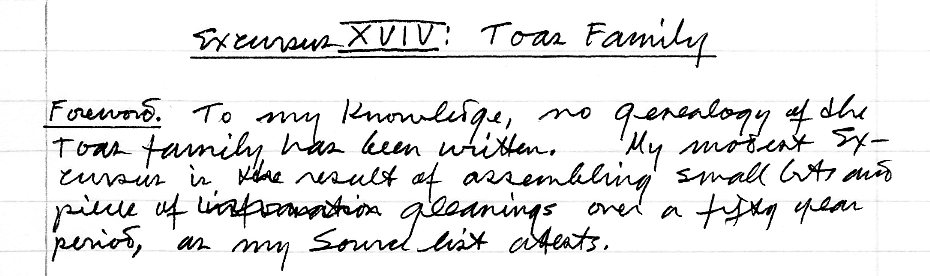 Excursus XVIV: Toas Family
Foreword. To my Knowledge, no genealogy of the
Toas family has been written. My modest Ex-
cursus is the result of assembling small bits and
piece of information gleanings over a fifty year
period, as my Source list attests.